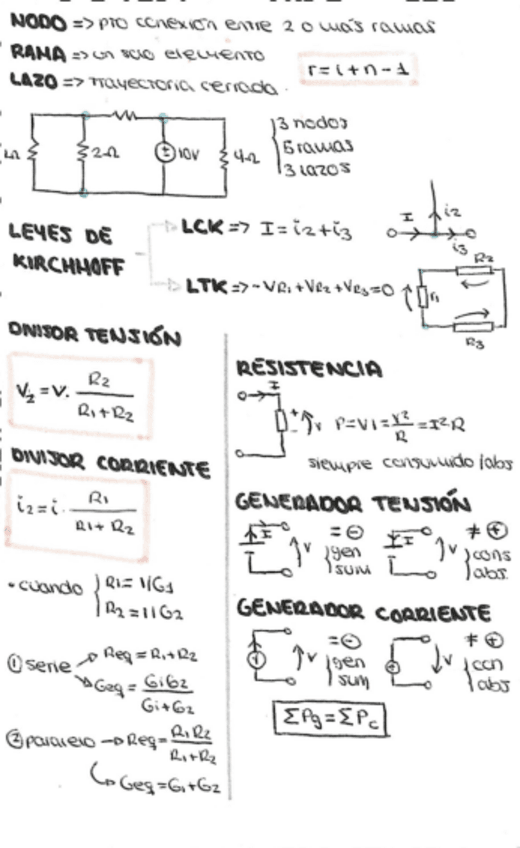 NODO => pto conexión entre 2 o más ramas
RAMA => un solo elemento
r = i + n - 1
LAZO => Trayectoria cerrada.
3 nodos
5 ramas
3 lazos
2Ω
10V
4Ω
LEYES DE
KIRCHHOFF
LCK => I = i2 + i3
I
i2
i3
LTK => -VR1 + VR2 + VR3 = 0
R2
r1
R3
DIVISOR TENSIÓN
V2 = V. R2 / R1 + R2
DIVISOR CORRIENTE
i2 = i . R1 / R1 + R2
• cuando
R1 = 1/G1
R2 = 1/G2
① serie
Req = R1 + R2
Geq = G1G2 / G1 + G2
② paralelo -> Req = R1R2 / R1 + R2
Geq = G1 + G2
RESISTENCIA
I
V
P = VI = V² / R = I²R
siempre consumido/abs
GENERADOR TENSIÓN
I
V
= ⊖
gen
sum
I
V
≠ ⊕
cons
abs.
GENERADOR CORRIENTE
V
= ⊖
gen
sum
V
≠ ⊕
con
abs
ΣPg = ΣPc